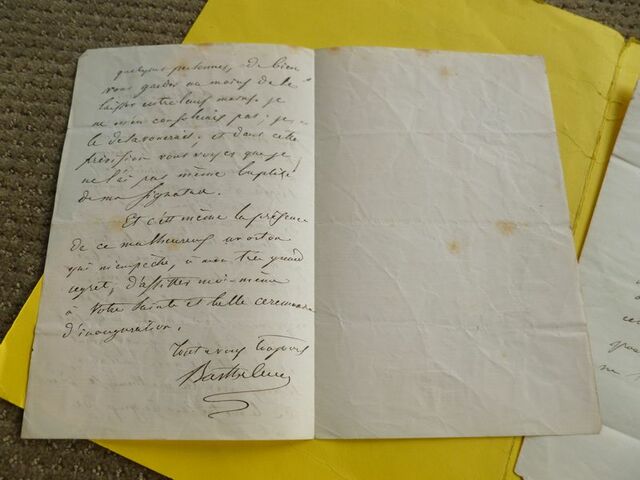 quelques personnes, de bien
vous garder au moins de le
laisser entre leurs mains. je
ne m'en consolerais pas; je
le désavouerais; et dans cette
prévision vous voyez que je
ne l'ai pas même baptisé
de ma signature.
Et c'est même la présence
de ce malheureux avorton
qui m'empêche, à mon très grand
regret, d'assister moi-même
à votre sainte et belle cérémonie
d'inauguration.
Tout à vous toujours
Barthélemy